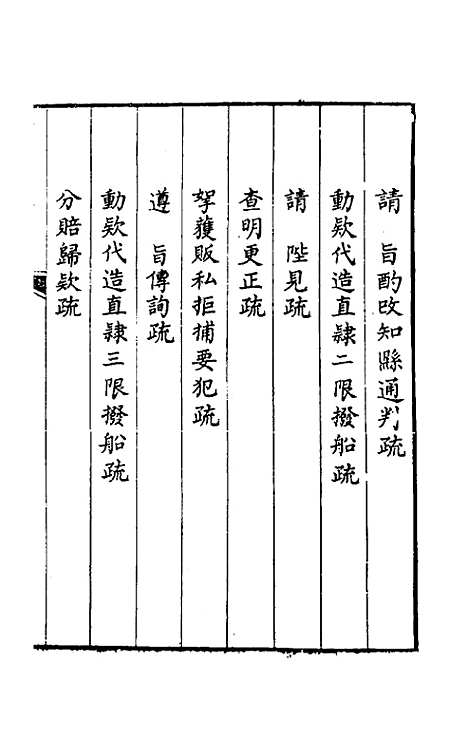 請　旨酌改知縣通判疏
動欵代造直隸二限撥船疏
請　陛見疏
查明更正疏
拏獲販私拒捕要犯疏
遵　旨傳詢疏
動欵代造直隸三限撥船疏
分賠歸欵疏